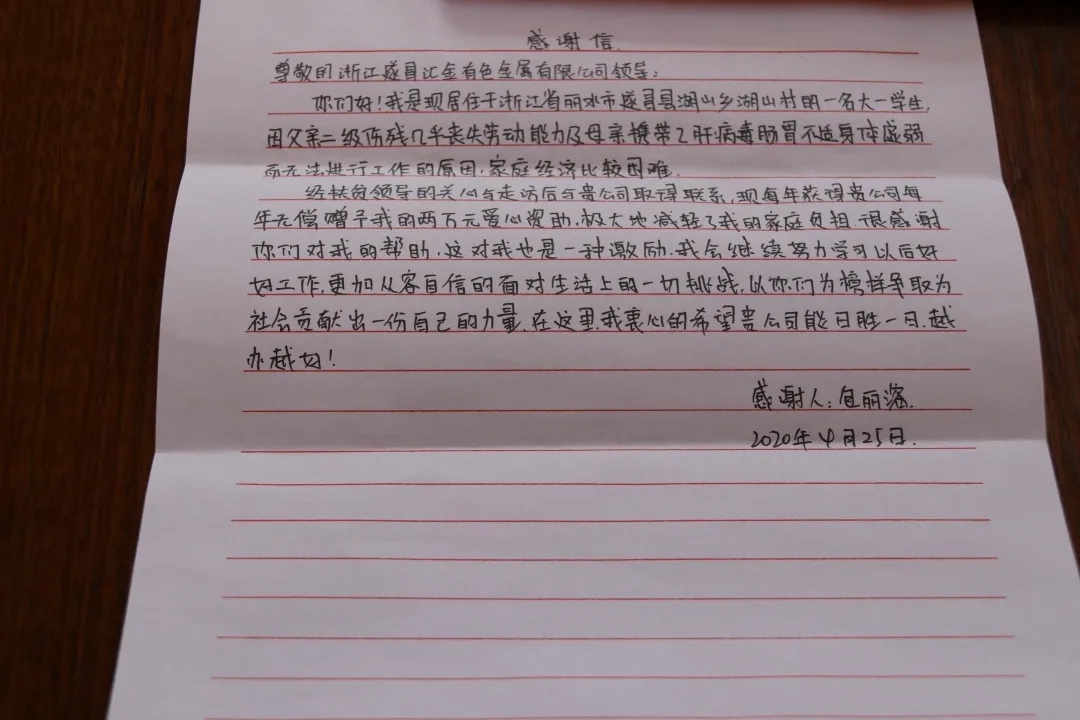 感谢信
尊敬的浙江遂昌汇金有色金属有限公司领导:
你们好!我是现居住于浙江省丽水市遂昌县湖山乡湖山村的一名大一学生,
因父亲二级伤残几乎丧失劳动能力及母亲携带乙肝病毒肠胃不适身体虚弱
而无法进行工作的原因,家庭经济比较困难.
经扶贫领导的关心与走访后与贵公司取得联系,现每年获得贵公司每
年无偿赠予我的两万元爱心资助,极大地减轻了我的家庭负担.很感谢
你们对我的帮助,这对我也是一种激励.我会继续努力学习以后好
好工作,更加从容自信的面对生活上的一切挑战,以你们为榜样争取为
社会贡献出一份自己的力量.在这里,我衷心的希望贵公司能日胜一日,越
办越好!
感谢人:包丽
2020年4月25日.